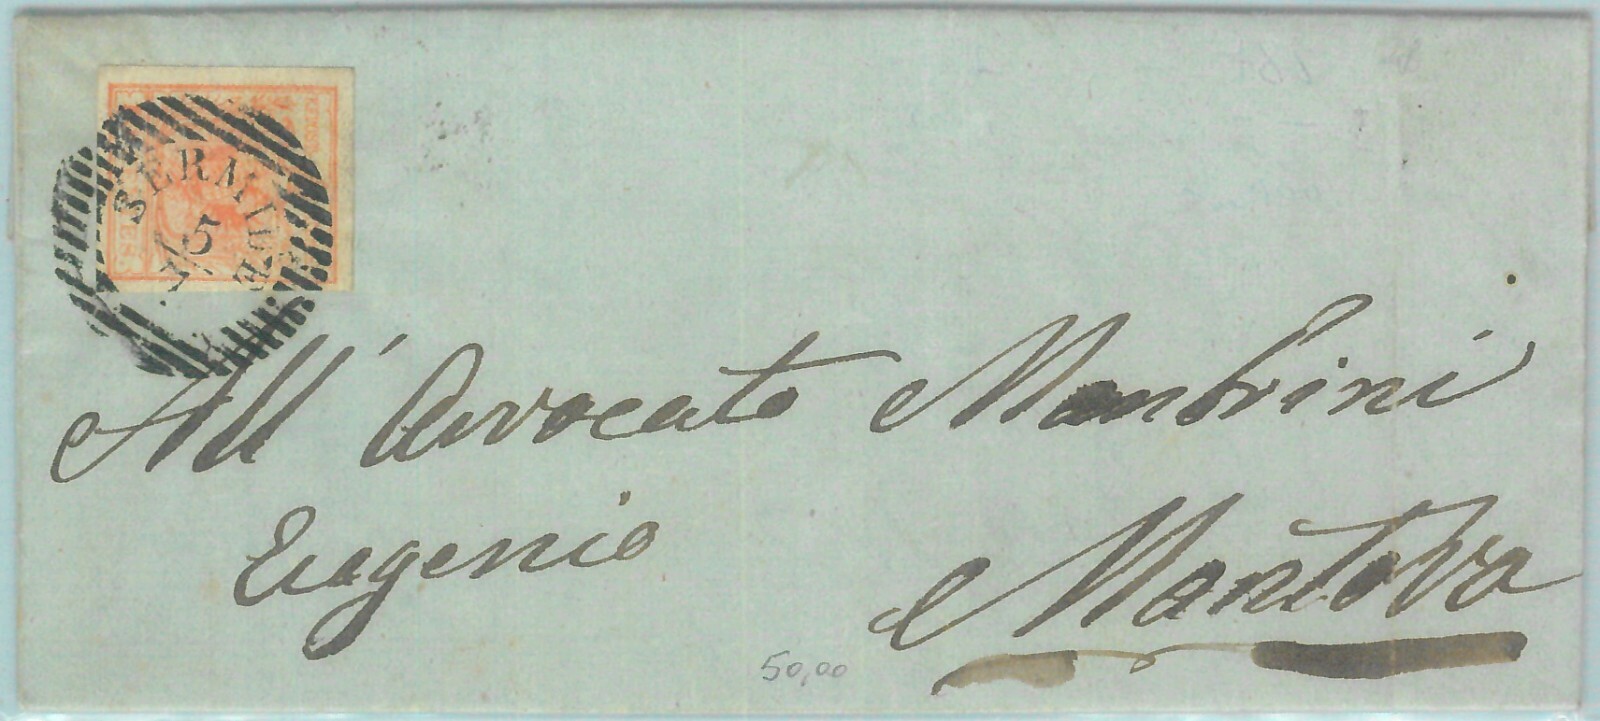 SERMIDE
15
All' Avvocato Manbrini
Eugenio
Mantova
50,00